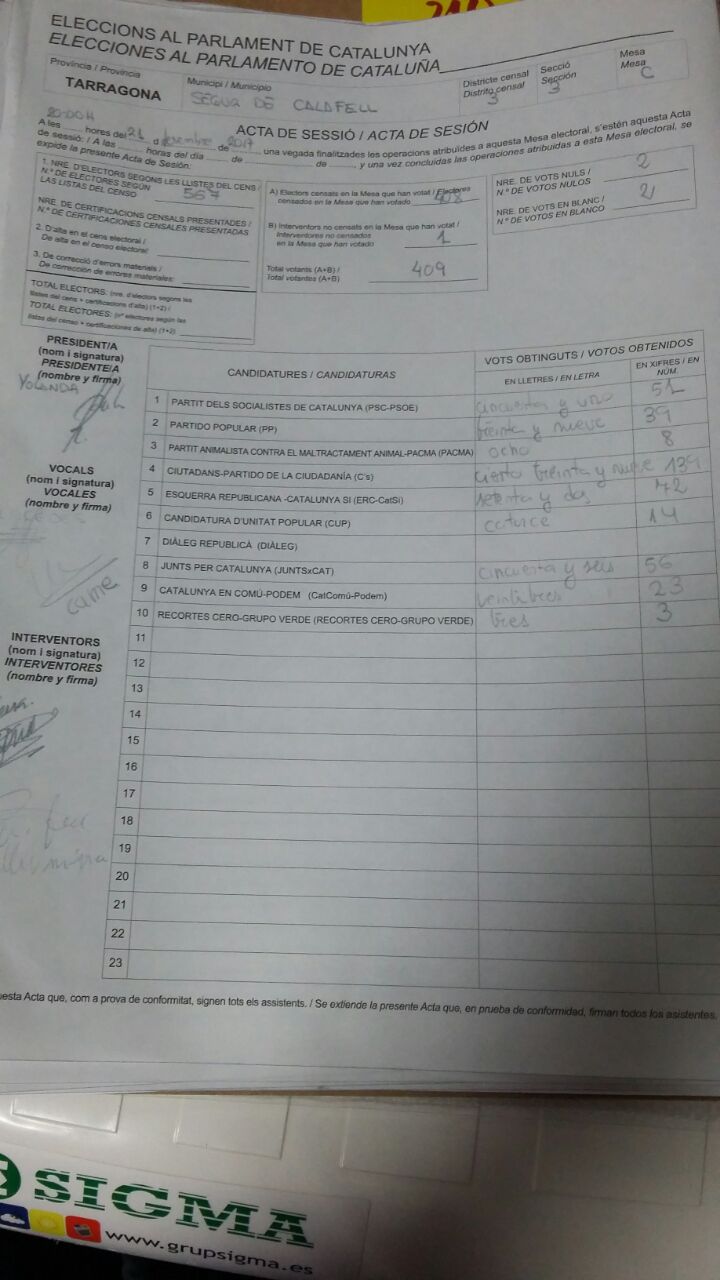 ELECCIONS AL PARLAMENT DE CATALUNYA
ELECCIONES AL PARLAMENTO DE CATALUÑA
Província / Provincia
TARRAGONA
Municipi / Municipio
SEGUR DE CALAFELL
Districte censal
Distrito censal
3
Secció
Sección
3
Mesa
Mesa
C
ACTA DE SESSIÓ / ACTA DE SESIÓN
20:00H
A les ........ hores del 21 d desembre de 2017, una vegada finalitzades les operacions atribuïdes a aquesta Mesa electoral, s'estén aquesta Acta
de sessió: / A las ........ horas del día ........ de ........ de ........, y una vez concluidas las operaciones atribuidas a esta Mesa electoral, se
expide la presente Acta de Sesión:
1. NRE. D'ELECTORS SEGONS LES LLISTES DEL CENS /
N.º DE ELECTORES SEGÚN
LAS LISTAS DEL CENSO
557
NRE. DE CERTIFICACIONS CENSALS PRESENTADES /
N.º DE CERTIFICACIONES CENSALES PRESENTADAS
2. D'alta en el cens electoral /
De alta en el censo electoral:
3. De correcció d'errors materials /
De corrección de errores materiales:
TOTAL ELECTORS: (nre. d'electors segons les
llistes del cens + certificacions d'alta) (1+2) /
TOTAL ELECTORES: (nº electores según las
listas del censo + certificaciones de alta) (1+2)
A) Electors censats en la Mesa que han votat / Electores
censados en la Mesa que han votado 408
B) Interventors no censats en la Mesa que han votat /
Interventores no censados
en la Mesa que han votado 1
Total votants (A+B) /
Total votantes (A+B) 409
NRE. DE VOTS NULS /
N.º DE VOTOS NULOS 2
NRE. DE VOTS EN BLANC /
N.º DE VOTOS EN BLANCO 2
PRESIDENT/A
(nom i signatura)
PRESIDENTE/A
(nombre y firma)
YOLANDA
VOCALS
(nom i signatura)
VOCALES
(nombre y firma)
INTERVENTORS
(nom i signatura)
INTERVENTORES
(nombre y firma)
CANDIDATURES / CANDIDATURAS
VOTS OBTINGUTS / VOTOS OBTENIDOS
EN LLETRES / EN LETRA
EN XIFRES / EN NÚM.
1 PARTIT DELS SOCIALISTES DE CATALUNYA (PSC-PSOE) cincuenta y uno 51
2 PARTIDO POPULAR (PP) treinta y nueve 39
3 PARTIT ANIMALISTA CONTRA EL MALTRACTAMENT ANIMAL-PACMA (PACMA) ocho 8
4 CIUTADANS-PARTIDO DE LA CIUDADANÍA (C's) ciento treinta y nueve 139
5 ESQUERRA REPUBLICANA -CATALUNYA SÍ (ERC-CatSí) setenta y dos 72
6 CANDIDATURA D'UNITAT POPULAR (CUP) catorce 14
7 DIÀLEG REPUBLICÀ (DIÀLEG)
8 JUNTS PER CATALUNYA (JUNTSxCAT) cincuenta y seis 56
9 CATALUNYA EN COMÚ-PODEM (CatComú-Podem) veintitres 23
10 RECORTES CERO-GRUPO VERDE (RECORTES CERO-GRUPO VERDE) tres 3
11
12
13
14
15
16
17
18
19
20
21
22
23
uesta Acta que, com a prova de conformitat, signen tots els assistents. / Se extiende la presente Acta que, en prueba de conformidad, firman todos los asistentes,
SIGMA
www.grupsigma.es